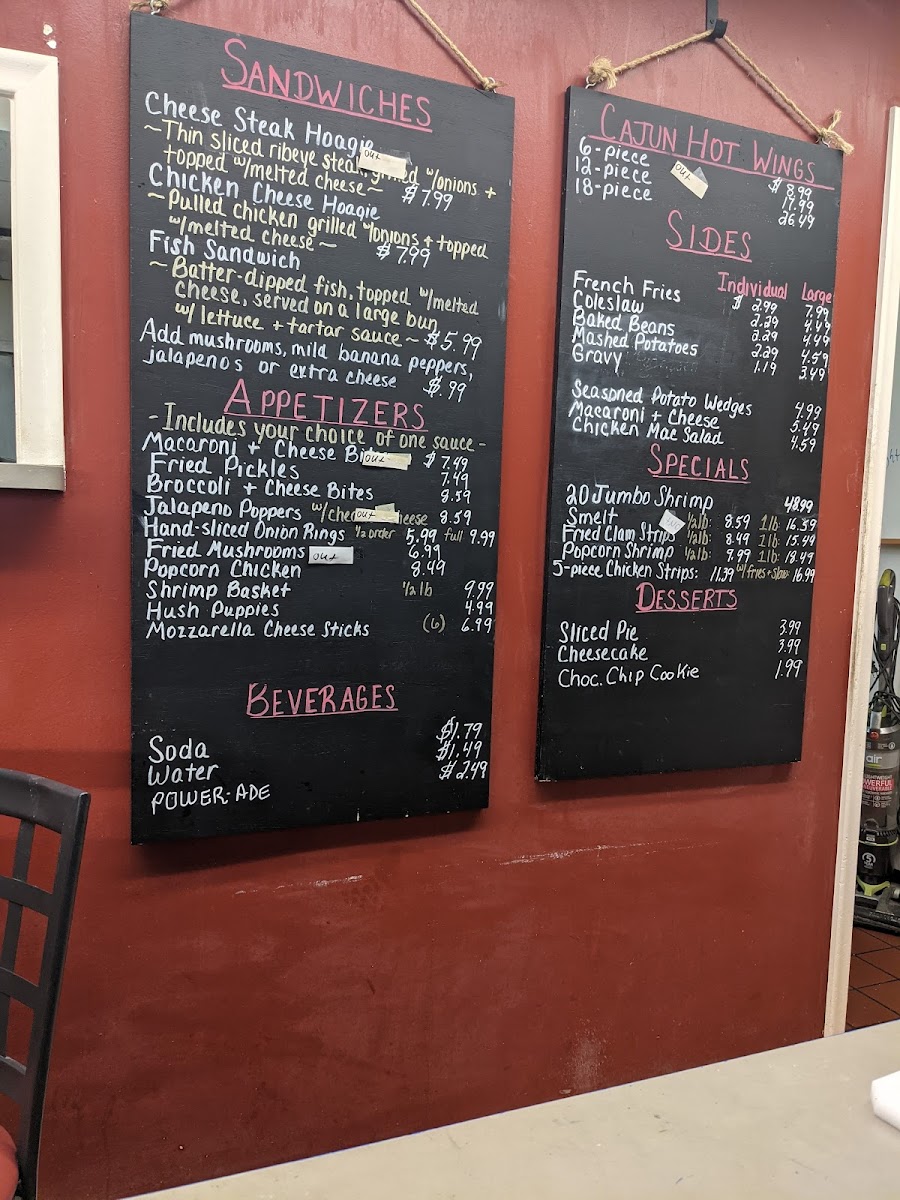 SANDWICHES
Cheese Steak Hoagie
~Thin sliced ribeye steak grilled w/onions +
out
topped w/melted cheese~ $7.99
Chicken Cheese Hoagie
~Pulled chicken grilled w/onions + topped
w/melted cheese~ $7.99
Fish Sandwich
~Batter-dipped fish, topped w/melted
cheese, served on a large bun
w/lettuce + tartar sauce~ $5.99
Add mushrooms, mild banana peppers,
jalapenos or extra cheese $.99
APPETIZERS
-Includes your choice of one sauce-
Macaroni + Cheese Bi out $7.49
Fried Pickles 7.49
Broccoli + Cheese Bites 8.59
Jalapeno Poppers w/che out eese 8.59
Hand-sliced Onion Rings ½ order 5.99 full 9.99
Fried Mushrooms out 6.99
Popcorn Chicken 8.49
Shrimp Basket ½lb 9.99
Hush Puppies 4.99
Mozzarella Cheese Sticks (6) 6.99
BEVERAGES
Soda $1.79
Water $1.49
POWER-ADE $2.49
CAJUN HOT WINGS
6-piece $8.99
12-piece out 17.99
18-piece 26.49
SIDES
Individual Large
French Fries $2.99 7.99
Coleslaw 2.29 4.49
Baked Beans 2.29 4.49
Mashed Potatoes 2.29 4.59
Gravy 1.19 3.49
Seasoned Potato Wedges 4.99
Macaroni + Cheese 5.49
Chicken Mac Salad 4.59
SPECIALS
20 Jumbo Shrimp 48.99
Smelt ½lb: 8.59 1lb: 16.59
Fried Clam Strips ½lb: 8.49 1lb: 15.49
Popcorn Shrimp ½lb: 9.99 1lb: 18.49
5-piece Chicken Strips: 11.39 w/fries + slaw: 16.99
DESSERTS
Sliced Pie 3.99
Cheesecake 3.99
Choc. Chip Cookie 1.99
air
LIGHTWEIGHT
POWERFUL